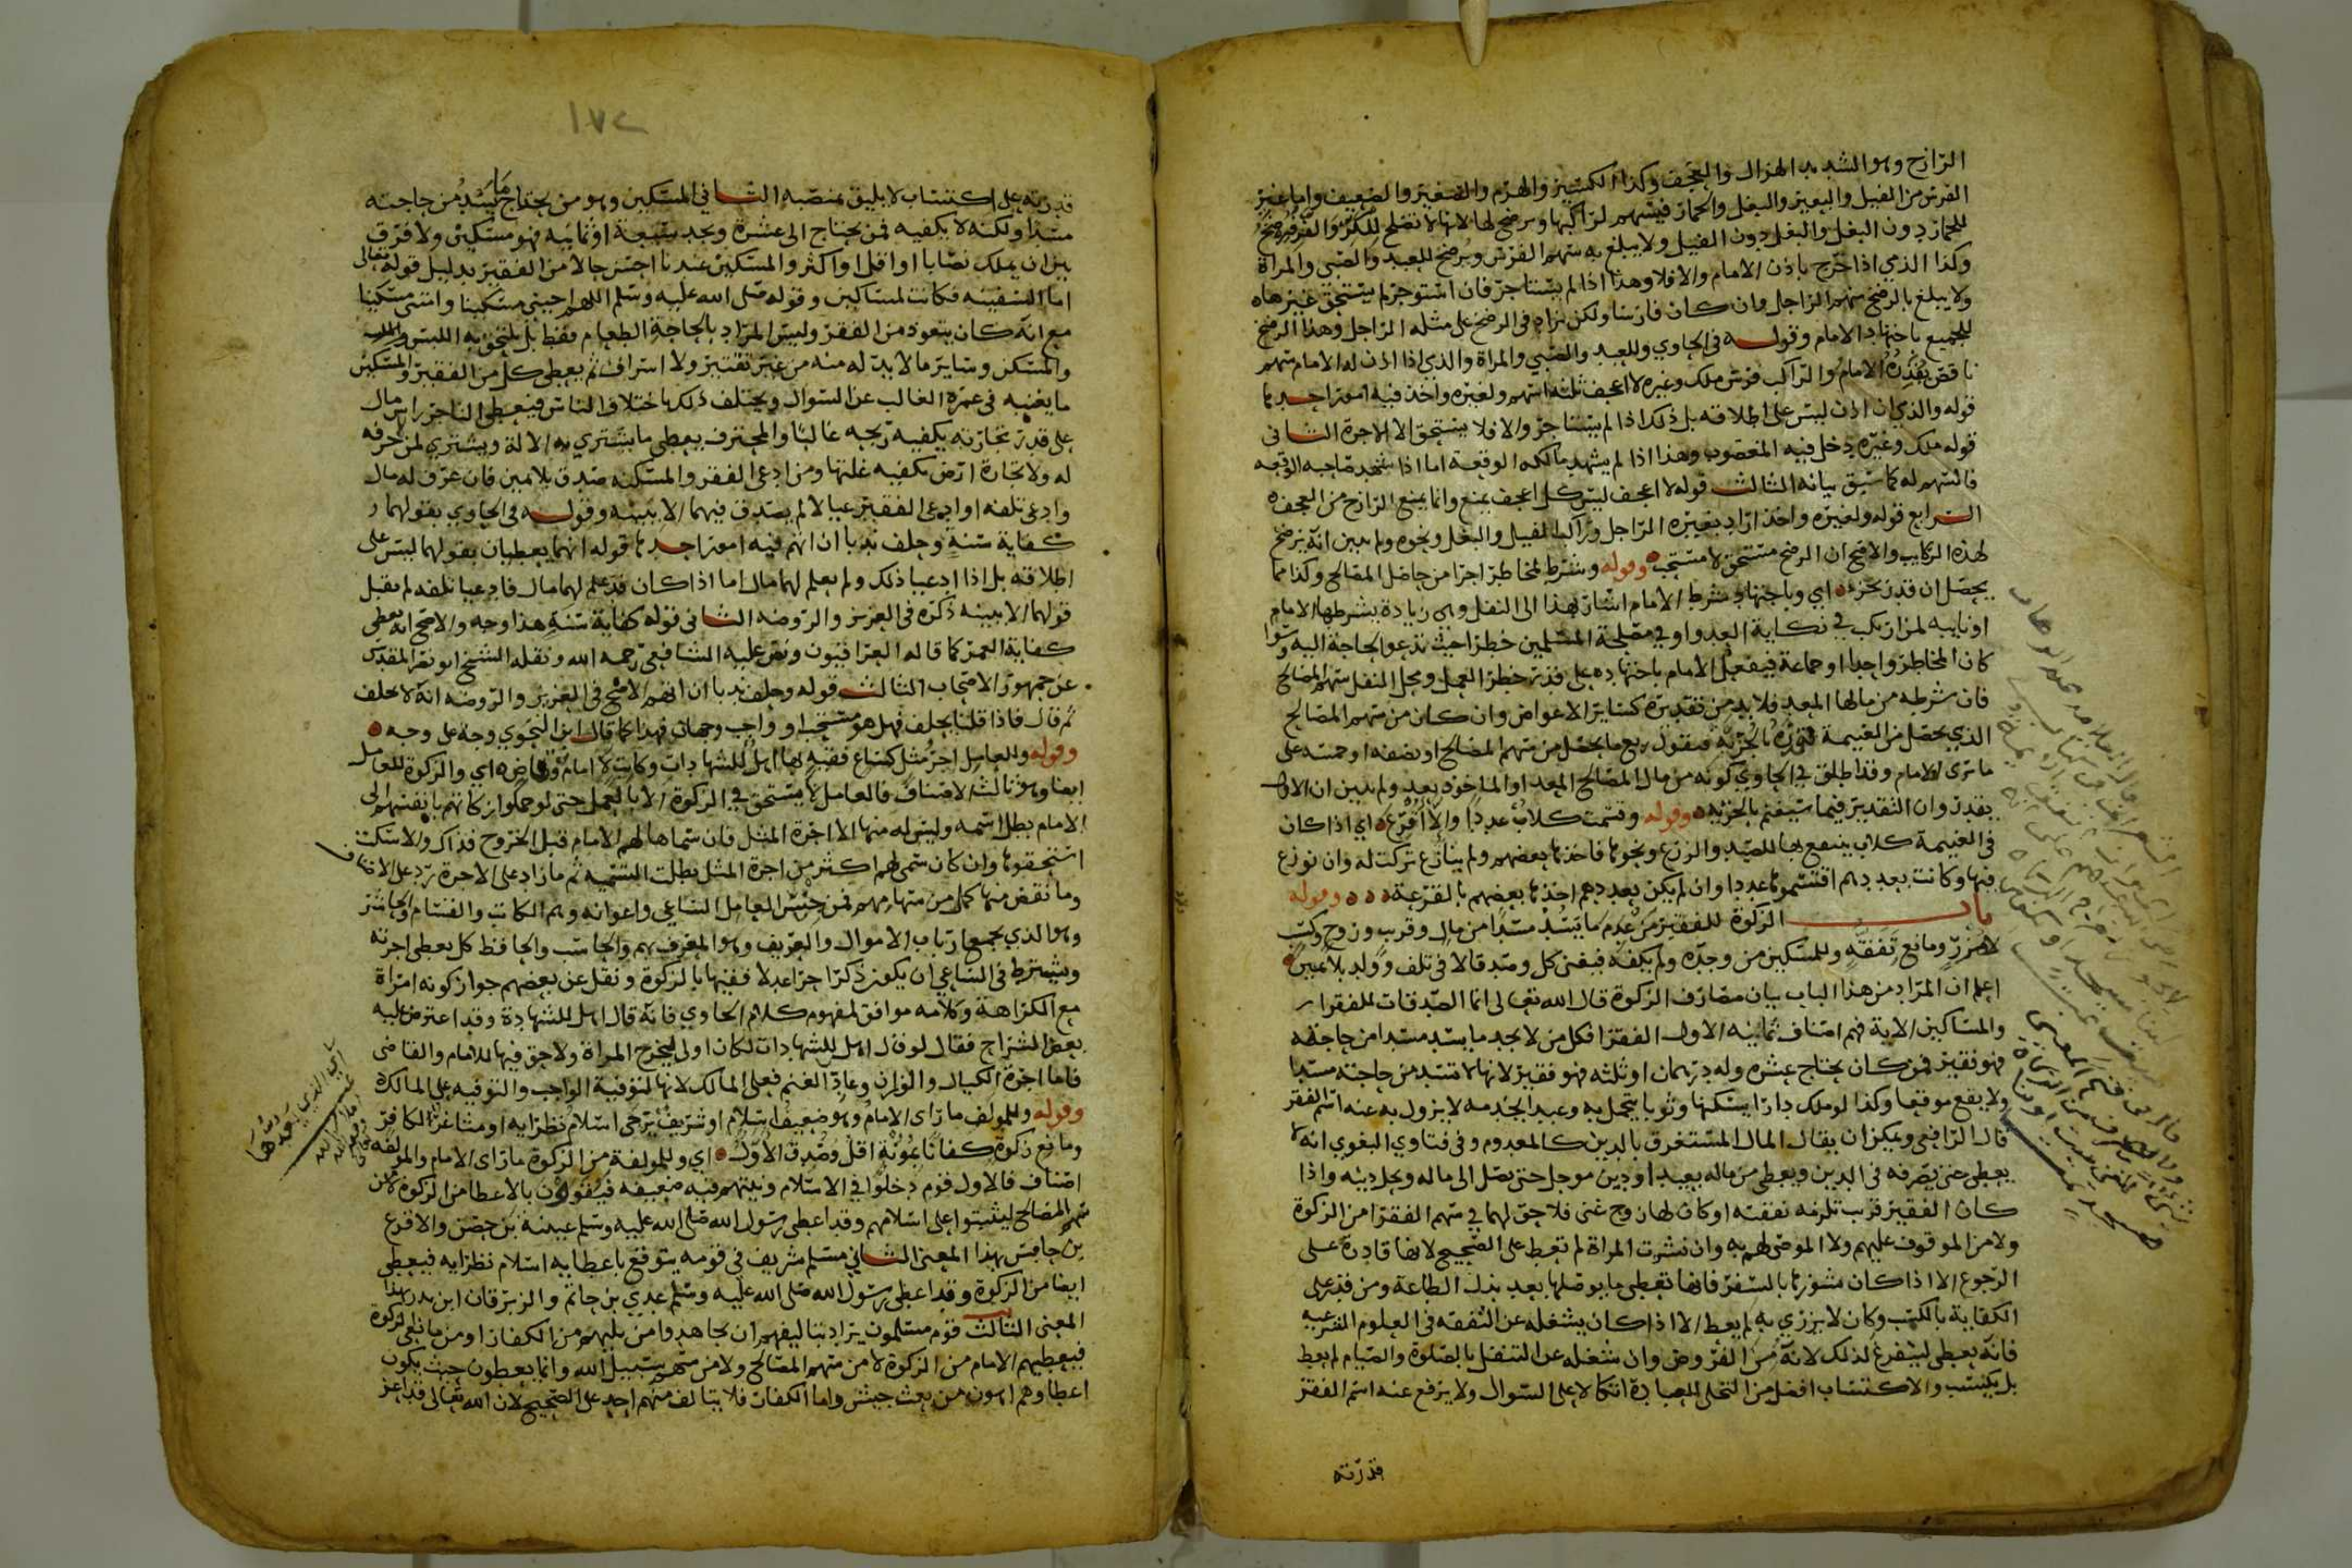 الرازح وهو الشديد الهزال والعجف وكذا الكسير والهرم والصغير والضعيف واما غير
الفرس من الفيل والبعير والبغل والحمار فيسهم لراكبها ويرضخ لها لانها لا تصلح للكر والفر فيرضخ
للحمار دون البغل والبغل دون الفيل ولا يبلغ به سهم الفرس ويرضخ للعبد والصبي والمراة
وكذا الذمي اذا خرج باذن الامام والا فلا وهذا اذا لم يستاجر فان استوجر لم يستحق غيرها
ولا يبلغ بالرضخ سهم الراجل وان كان فارسا ولكن يزاد في الرضخ على مثله الراجل وهذا الرضخ
للجميع باجتهاد الامام وقوله في الحاوي وللعبد والصبي والمراة والذمي اذا اذن له الامام سهم
ناقص يقدره الامام والراكب فرس ملك وغيره لا اعجف ثلثة اسهم ولغيره واحد فيه امور احدها
قوله والذمي ان اذن ليس على اطلاقه بل ذلك اذا لم يستاجر والا فلا يستحق الا الاجرة الثاني
قوله ملك وغيره دخل فيه المغصوب وهذا اذا لم يشهد مالكه الوقعة اما اذا شهد صاحبه الوقعة
فالسهم له كما سبق بيانه الثالث قوله لا اعجف ليس كل اعجف يمنع وانما يمنع الرازح من العجف
الرابع قوله ولغيره واحد اراد بغيره الراجل وراكب الفيل والبغل ونحوه ولم يبين انه يرضخ
لهذه الركايب والاصح ان الرضخ مستحق لا مستحب وقوله وشرط لمخاطر اجرا من حاصل المصالح وكذا مما
يحصل ان قدر بجزء اي وباجتهاد شرط الامام اشار بهذا الى النفل وهي زيادة يشرطها الامام
او نايبه لمن ارتكب في نكاية العدو او في مصلحة المسلمين خطرا حيث تدعو الحاجة اليه وسوا
كان المخاطر واحدا او جماعة فيفعل الامام باجتهاده على قدر خطر العمل ومحل النفل سهم المصالح
فان شرطه من مالها المعد فلا بد من تقديره كساير الاعواض وان كان من سهم المصالح
الذي يحصل من الغنيمة قدره بالجزئية فيقول ربع ما يحصل من سهم المصالح او نصفه او خمسه على
ما ترى الامام وقد اطلق في الحاوي كونه من مال المصالح المعد او الماخوذ بعد ولم يبين ان الاول
يقدر وان التقدير فيما سيغنم بالجزئية وقوله وقسمت كلاب عددا والا اقرع اي اذا كان
في الغنيمة كلاب ينتفع بها للصيد والزرع ونحوها فاخذها بعضهم ولم ينازع تركت له وان نوزع
فيها وكانت بعددهم اقتسموها عددا وان لم يكن بعددهم اخذها بعضهم بالقرعة وقوله
باب الزكوة للفقير من عدم ما يسد مسدا من مال وقريب وزوج وكسب
لا مزر ومانع تفقه وللمسكين من وجده ولم يكفه فيغنى كل وصدقا لا في تلف وولد بلا يمين
اعلم ان المراد من هذا الباب بيان مصارف الزكوة قال الله تعالى انما الصدقات للفقرا
والمساكين الاية فهم اصناف ثمانية الاول الفقرا فكل من لا يجد ما يسد مسدا من حاجته
فهو فقير فمن كان يحتاج عشره وله درهمان او ثلثه فهو فقير لانها لا تسد من حاجته مسدا
ولا يقع موقعا وكذا لو ملك دارا يسكنها وثوبا يتجمل به وعبد الخدمه لا يزول به عنه اسم الفقر
قال الرافعي ويمكن ان يقال المال المستغرق بالدين كالمعدوم وفي فتاوي البغوي انه لا
يعطى حتى يصرفه في الدين ويعطى من ماله بعيد او دين موجل حتى يصل الى ماله ويحل دينه واذا
كان الفقير قريب تلزمه نفقته او كان لها زوج غنى فلا حق لهما في سهم الفقرا من الزكوة
ولا من الموقوف عليهم ولا الموصى لهم به وان نشزت المراة لم تعط على الصحيح لانها قادرة على
الرجوع الا اذا كان نشوزها بالسفر فانها تعطى ما يوصلها بعد بذل الطاعة ومن قدر على
الكفاية بالكسب وكان لا يزري به لم يعط الا اذا كان يشغله عن التفقه في العلوم الشرعيه
فانه يعطى ليتفرغ لذلك لانه من الفروض وان شغله عن التنفل بالصلوة والصيام لم يعط
بل يكتسب والاكتساب افضل من التخلي للعبادة اتكالا على السوال ولا يرفع عنه اسم الفقر
قدرته
١٧٢
قدرته على اكتساب لا يليق بمنصبه الثاني المسكين وهو من يحتاج ما يسد من حاجته
مسدا ولكنه لا يكفيه فمن يحتاج الى عشرة ويجد سبعة او ثمانيه فهو مسكين ولا فرق
بين ان يملك نصابا او اقل او اكثر والمسكين عندنا احسن حالا من الفقير بدليل قوله تعالى
اما السفينه فكانت لمساكين وقوله صلى الله عليه وسلم اللهم احيني مسكينا وامتني مسكينا
مع انه كان يتعوذ من الفقر وليس المراد بالحاجة الطعام فقط بل يلتحق به الملبس
والمسكن وساير ما لا بد له منه من غير تقتير ولا اسراف ثم يعطى كل من الفقير والمسكين
ما يغنيه في عمره الغالب عن السوال ويختلف ذلك باختلاف الناس فيعطى التاجر راس مال
على قدر تجارته يكفيه ربحه غالبا والمحترف يعطى ما يشتري به الالة ويشتري لمن لا حرفه
له ولا تجارة ارض تكفيه غلتها ومن ادعى الفقر والمسكنه صدق بلا يمين فان عرف له مال
وادعى تلفه او ادعى الفقير عيالا لم يصدق فيهما الا ببينه وقوله في الحاوي بقولهما
كفاية سنة وحلف ندبا ان اتهم فيه امور احدها قوله انهما يعطيان بقولهما ليس على
اطلاقه بل اذا ادعيا ذلك ولم يعلم لهما مال اما اذا كان قد علم لهما مال فادعيا تلفه لم يقبل
قولهما الا ببينه ذكره في العزيز والروضه الثاني قوله كفاية سنة هذا وجه والاصح انه يعطى
كفاية العمر كما قاله العراقيون ونص عليه الشافعي رحمه الله ونقله الشيخ ابو نصر المقدسى
عن جمهور الاصحاب الثالث قوله وحلف ندبا ان اتهم الاصح في العزيز والروضه انه لا يحلف
ثم قال فاذا قلنا يحلف فهل هو مستحب او واجب وجهان فهذا كما قال ابن النحوي وجه على وجه
وقوله والعامل اجر مثل كساع فقيه بها اهل للشهادات وكاتب لا امام وقاض اي والزكوة للعامل
ايضا وهو ثالث الاصناف فالعامل لا يستحق في الزكوة الا بالعمل حتى لو حملوا زكاتهم بانفسهم الى
الامام بطل اسمه وليس له منها الا اجرة المثل فان سماها لهم الامام قبل الخروج فذاك والا سكت
استحقوها وان كان سمى لهم اكثر من اجرة المثل بطلت التسميه ثم ما زاد على الاجرة يرد على الاصناف
وما نقص منها كمل من سهامهم فمن جنس العامل الساعي واعوانه وهم الكاتب والقسام والحاشر
وهو الذي يجمع ارباب الاموال والعريف وهو المعرف بهم والحاسب والحافظ كل يعطى اجرته
ويشترط في الساعي ان يكون ذكرا حرا عدلا فقيها بالزكوة ونقل عن بعضهم جواز كونه امراة
مع الكراهة وكلامه موافق لمفهوم كلام الحاوي فانه قال اهل للشهادة وقد اعترض عليه
بعض الشراح فقال لو قال اهل للشهادات لكان اولى ليخرج المراة ولا حق فيها للامام والقاضى
فاما اجرة الكيال والوزان وعاد الغنم فعلى المالك لانها لتوفية الواجب والتوفيه على المالك
وقوله وللمولف ما راى الامام وهو ضعيف اسلام او شريف يرجى اسلام نظرايه او مشاغر الكافر
ومانع زكوة كفانا عونة اقل وصدق الاول اي وللمولفة من الزكوة ما راى الامام والمولفة
اصناف فالاول قوم دخلوا في الاسلام ونيتهم فيه ضعيفه فيقوون بالاعطا من الزكوة لا من
سهم المصالح ليثبتوا على اسلامهم وقد اعطى رسول الله صلى الله عليه وسلم عيينة بن حصن والاقرع
بن حابس بهذا المعنى الثاني مسلم شريف في قومه يتوقع باعطايه اسلام نظرايه فيعطى
ايضا من الزكوة وقد اعطى رسول الله صلى الله عليه وسلم عدي بن حاتم والزبرقان ابن بدر بهذا
المعنى الثالث قوم مسلمون يزاد بنا ليفهم ان يجاهدوا من يليهم من الكفار او من مانعى الزكوة
فيعطيهم الامام من الزكوة لا من سهم المصالح ولا من سهم سبيل الله وانما يعطون حيث يكون
اعطاوهم اهون من بعث جيش واما الكفات فلا يتالف منهم احد على الصحيح لان الله تعالى قد اعز